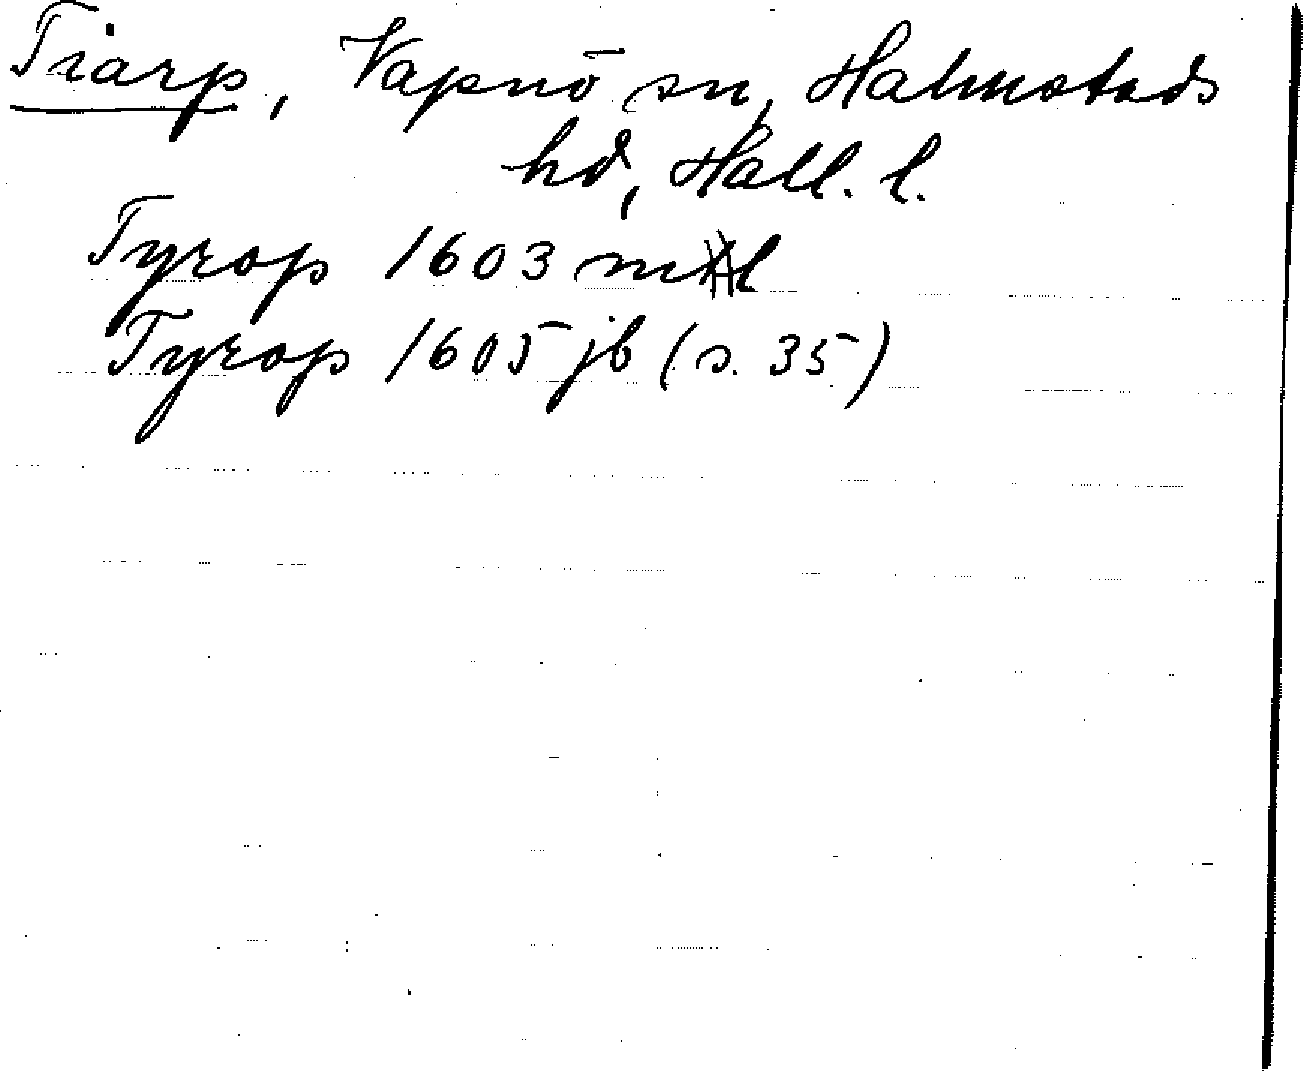 Tiarp, Vapnö sn, Halmstads
hd, Hall. l.
Tyrop 1603 ml
Tyrop 1605 jb (s. 35)